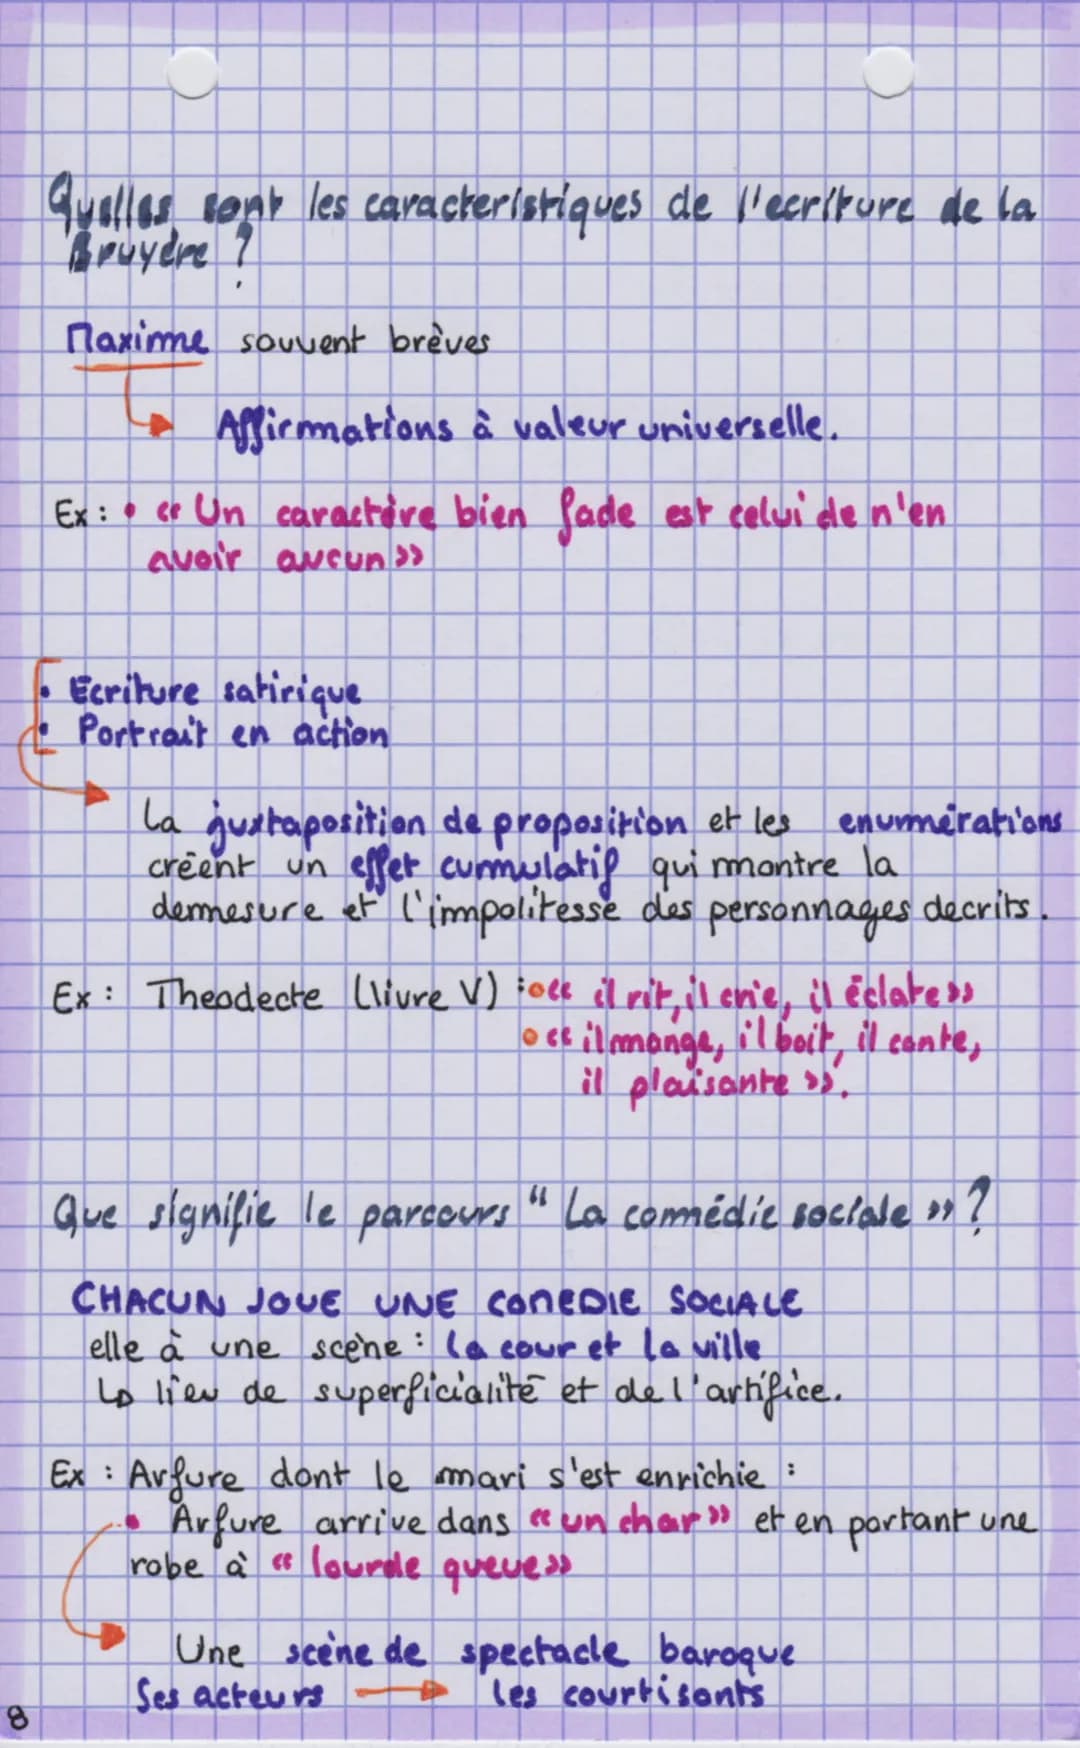 Quelles sont les caracteristiques de l'ecriture de la
Bruyère ?
Maxime souvent brèves
Affirmations à valeur universelle.
Ex : • « Un caractère bien fade est celui de n'en
avoir aucun »
• Ecriture satirique
• Portrait en action
La juxtaposition de proposition et les enumérations
créent un effet cummulatif qui montre la
demesure et l'impolitesse des personnages decrits.
Ex : Theodecte (livre V) : « il rit, il crie, il éclate »
« il mange, il boit, il conte,
il plaisante ».
Que signifie le parcours " La comédie sociale » ?
CHACUN JOUE UNE COMEDIE SOCIALE
elle à une scène : la cour et la ville
↳ lieu de superficialité et de l'artifice.
Ex : Arfure dont le mari s'est enrichie :
• Arfure arrive dans « un char » et en portant une
robe à « lourde queue »
Une scène de spectacle baroque
Ses acteurs → les courtisants
8